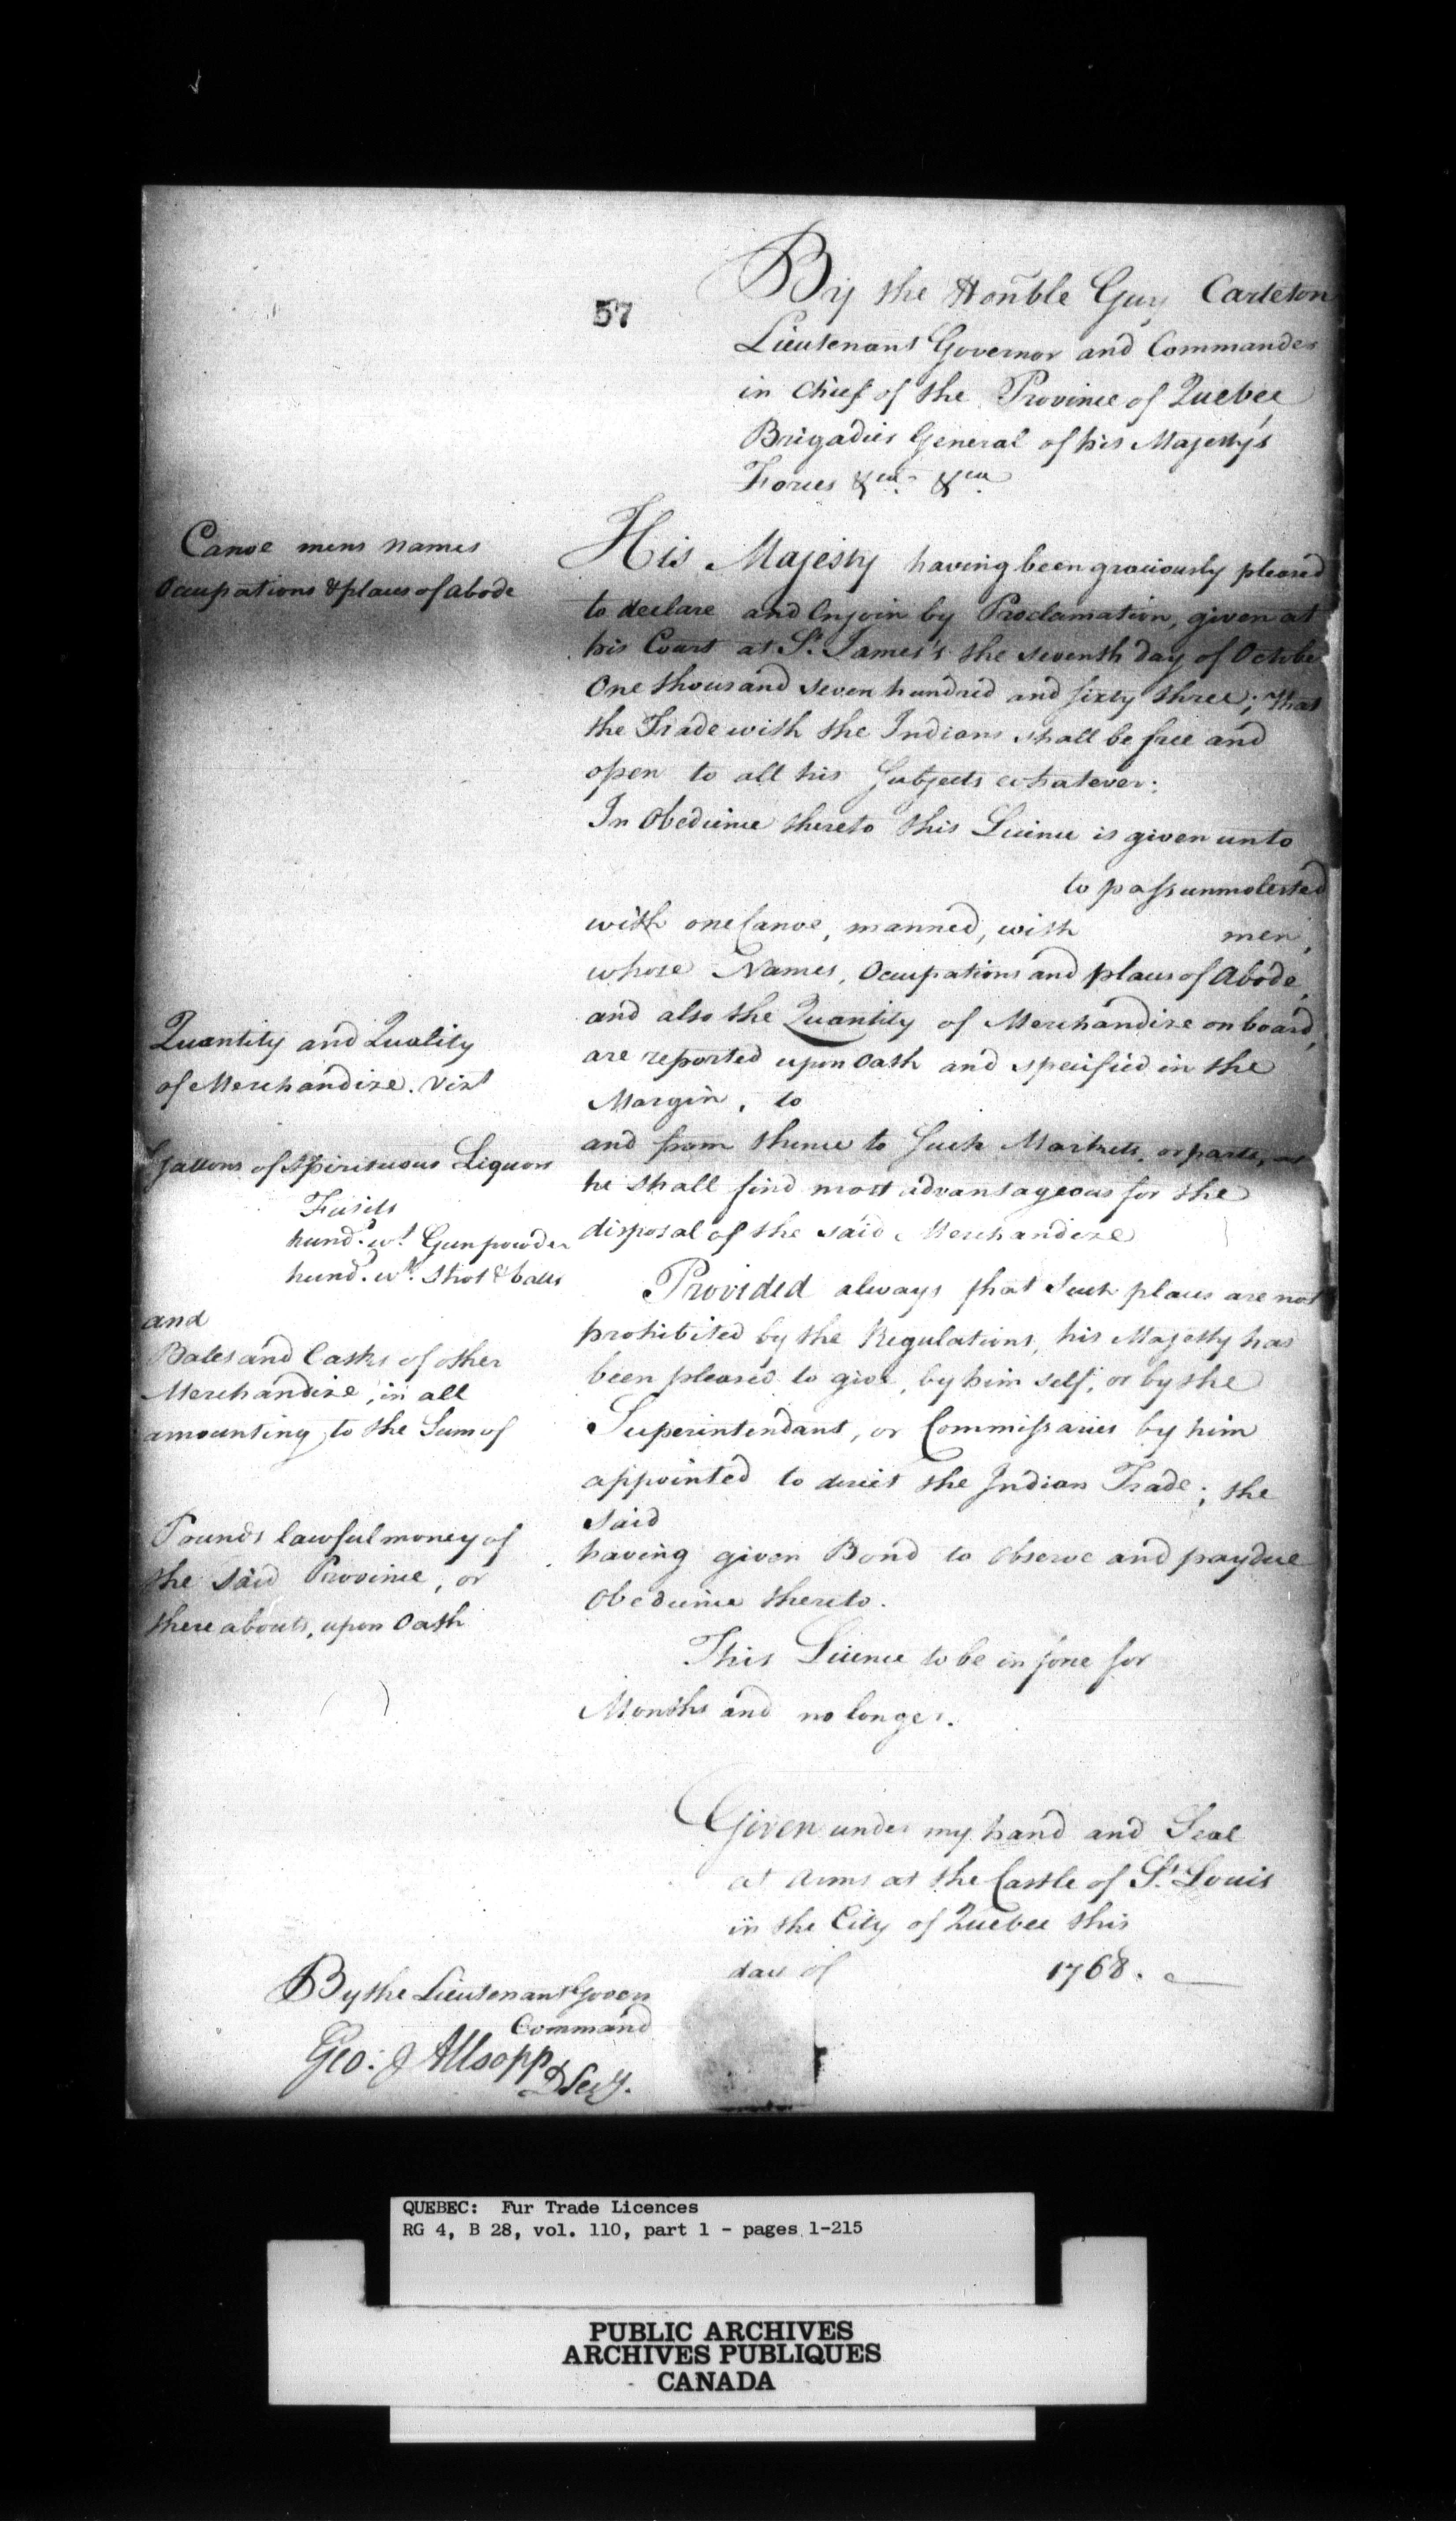 57
By the Hon̄ble Guy Carleton
Lieutenant Governor and Commander
in Chief of the Province of Quebec
Brigadier General of his Majesty's
Forces &ca. &ca
Canoe mens names
Ocupations & places of abode
His Majesty having been graciously pleased
to declare and Enjoin by Proclamation, given at
his Court at St. James's the seventh day of October
One thousand seven hundred and sixty three; that
the Trade with the Indians shall be free and
open to all his Subjects whatever:
In Obedience thereto this Licence is given unto
to pass unmolested
with one Canoe, manned, with men,
whose Names, Ocupations and places of Abode,
and also the Quantity of Merchandize on board,
are reported upon Oath and specified in the
Margin, to
and from thence to Such Markets, or parts, as
he shall find most advantageous for the
disposal of the said Merchandize
Quantity and Quality
of Merchandize. Vizt
Gallons of Spirituous Liquors
Fusils
hund.d wt. Gunpowder
hund.d wt. Shot & balls
and
Bales and Casks of other
Merchandize, in all
amounting to the Sum of
Pounds lawful money of
the said Province, or
there abouts, upon Oath
( )
Provided always that Such places are not
prohibited by the Regulations, his Majesty has
been pleased to give, by him self, or by the
Superintendant, or Commissaries by him
appointed to direct the Indian Trade; the
said
having given Bond to Observe and pay due
Obedience thereto.
This Licence to be in force for
Months and no longer.
Given under my hand and Seal
at Arms at the Castle of St. Louis
in the City of Quebec this
day of 1768.
By the Lieutenant Govers
Command
Geo: J Allsopp
D Secy.
QUEBEC: Fur Trade Licences
RG 4, B 28, vol. 110, part 1 - pages 1-215
PUBLIC ARCHIVES
ARCHIVES PUBLIQUES
CANADA